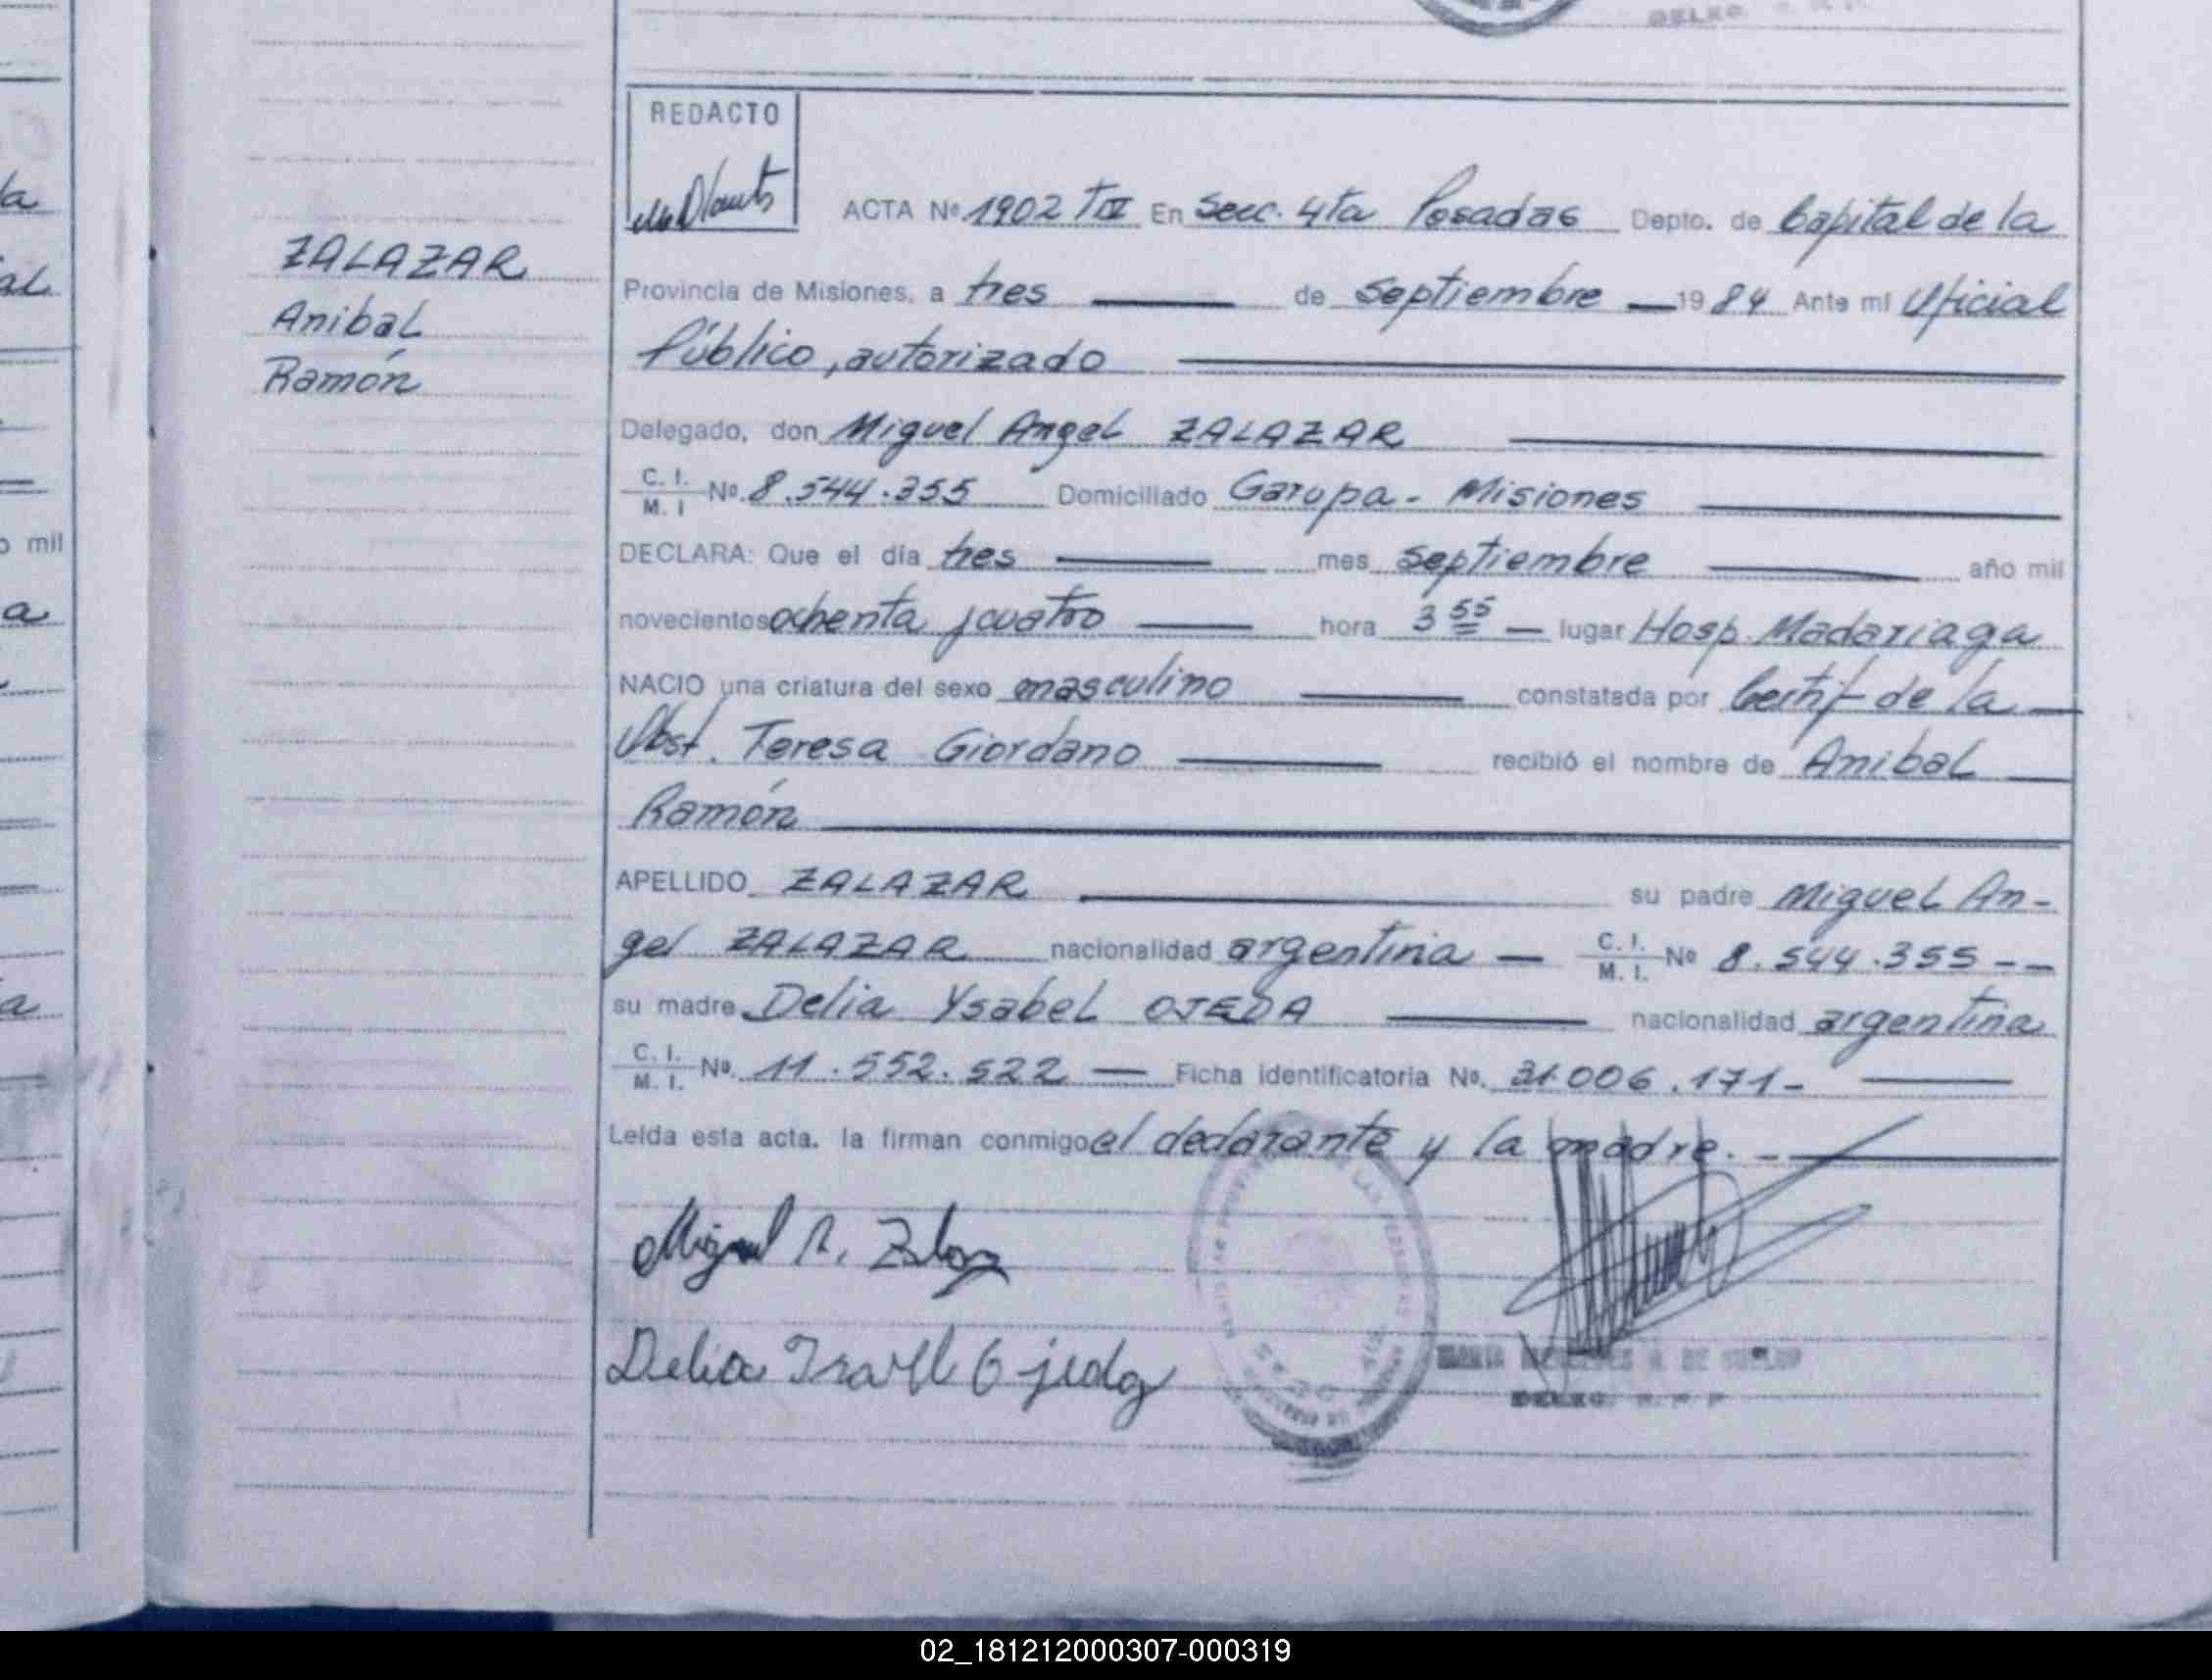 DELEG. R. P. P.
REDACTO
ZALAZAR
Anibal
Ramón
ACTA Nº 1902 TIV En Secc. 4ta Posadas Depto. de Capital de la
Provincia de Misiones, a tres de septiembre 1984 Ante mí Oficial
Público, autorizado
Delegado, don Miguel Angel ZALAZAR
C. I. M. I Nº 8.544.355 Domiciliado Garupa - Misiones
DECLARA: Que el día tres mes septiembre año mil
novecientos ochenta y cuatro hora 3 55 lugar Hosp. Madariaga
NACIO una criatura del sexo masculino constatada por Certif de la
Obst. Teresa Giordano recibió el nombre de Anibal
Ramón
APELLIDO ZALAZAR su padre Miguel An-
gel ZALAZAR nacionalidad argentina C. I. M. I. Nº 8.544.355 --
su madre Delia Ysabel OJEDA nacionalidad argentina
C. I. M. I. No. 11.552.522 Ficha identificatoria No. 31.006.171-
Leída esta acta. la firman conmigo el declarante y la madre. -
Miguel A. Zalazar
Delia Isabel Ojeda
DELEG. R. P. P.
a
al
o mil
a
a
02_181212000307-000319